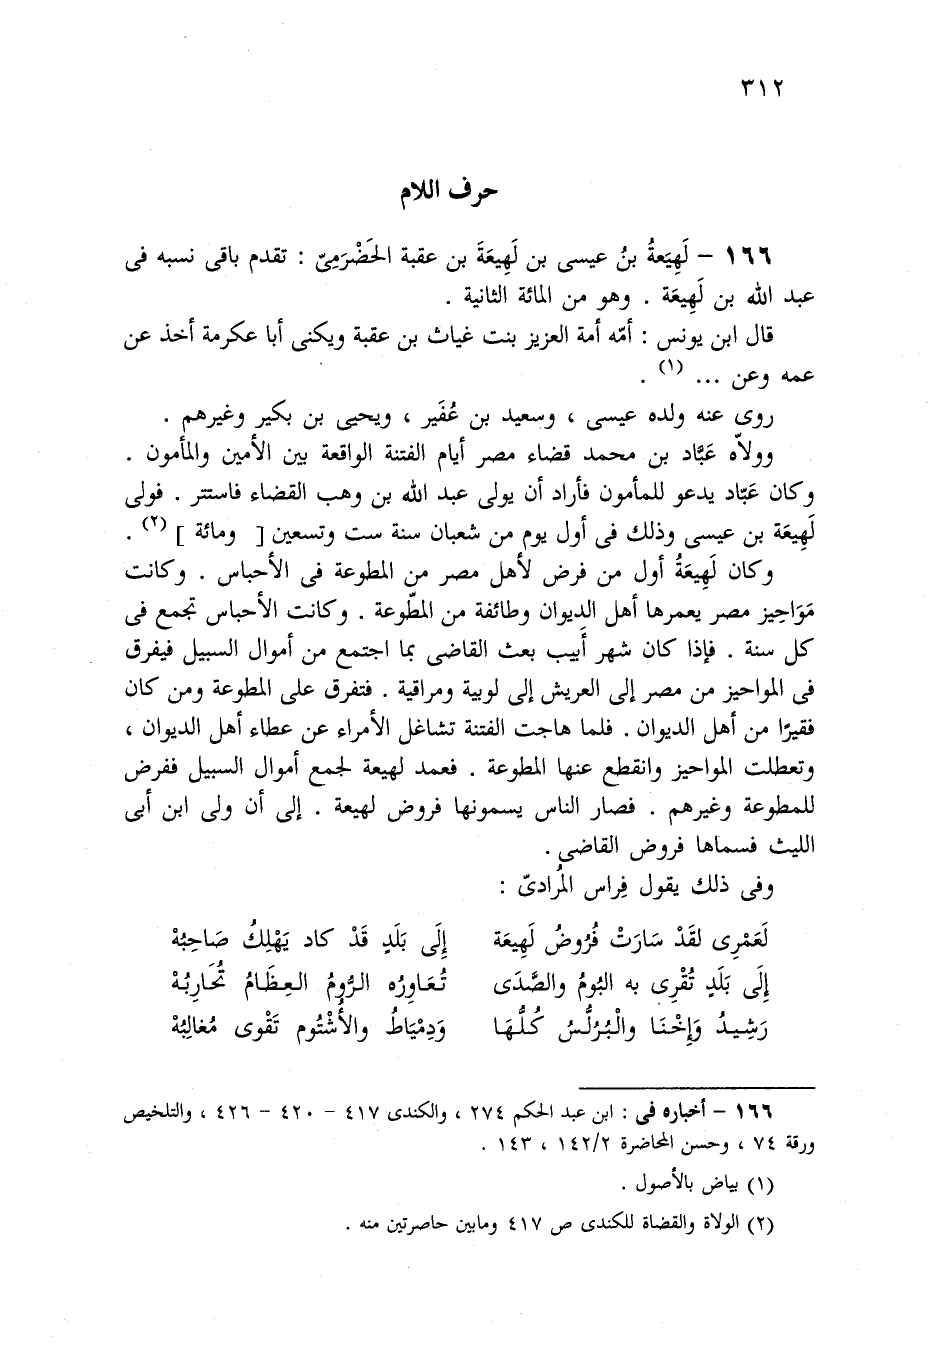 ٣١٢
حرف اللام
١٦٦ – لَهِيَعةُ بنُ عيسى بن لَهِيعَةَ بن عقبة الحَضْرَمِىّ : تقدم باقى نسبه فى
عبد الله بن لَهِيعَة . وهو من المائة الثانية .
قال ابن يونس : أمّه أمة العزيز بنت غياث بن عقبة ويكنى أبا عكرمة أخذ عن
عمه وعن ... (١) .
روى عنه ولده عيسى ، وسعيد بن عُفَير ، ويحيى بن بكير وغيرهم .
وولاّه عَبَّاد بن محمد قضاء مصر أيام الفتنة الواقعة بين الأمين والمأمون .
وكان عَبّاد يدعو للمأمون فأراد أن يولى عبد الله بن وهب القضاء فاستتر . فولى
لَهِيعَة بن عيسى وذلك فى أول يوم من شعبان سنة ست وتسعين [ ومائة ] (٢) .
وكان لَهِيعَةُ أول من فرض لأهل مصر من المطوعة فى الأحباس . وكانت
مَوَاحِيز مصر يعمرها أهل الديوان وطائفة من المطّوعة . وكانت الأحباس تجمع فى
كل سنة . فإذا كان شهر أَبيب بعث القاضى بما اجتمع من أموال السبيل فيفرق
فى المواحيز من مصر إلى العريش إلى لوبية ومراقية . فتفرق على المطوعة ومن كان
فقيرًا من أهل الديوان . فلما هاجت الفتنة تشاغل الأمراء عن عطاء أهل الديوان ،
وتعطلت المواحيز وانقطع عنها المطوعة . فعمد لهيعة لجمع أموال السبيل ففرض
للمطوعة وغيرهم . فصار الناس يسمونها فروض لهيعة . إلى أن ولى ابن أبى
الليث فسماها فروض القاضى .
وفى ذلك يقول فِراس المُرادىّ :
لَعَمْرِى لقَدْ سَارَتْ فُرُوضُ لَهِيعَة إِلَى بَلَدٍ قَدْ كاد يَهْلِكُ صَاحِبُهْ
إِلَى بَلَدٍ تُقْرِى به البُومُ والصَّدَى تُعَاوِرُه الرُّومُ العِظَامُ تُحَارِبُهْ
رَشِيدُ وَإِخْنَا والْبُرُلُّسُ كُلُّهَا وَدِمْيَاطُ والأُشْتُوم تَقْوى مُغالِبُهْ
١٦٦ – أخباره فى : ابن عبد الحكم ٢٧٤ ، والكندى ٤١٧ – ٤٢٠ – ٤٢٦ ، والتلخيص
ورقة ٧٤ ، وحسن المحاضرة ١٤٢/٢ ، ١٤٣ .
(١) بياض بالأصول .
(٢) الولاة والقضاة للكندى ص ٤١٧ ومابين حاصرتين منه .